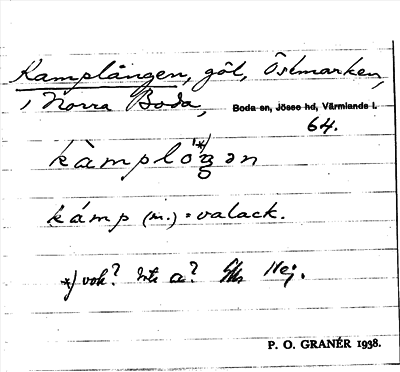 Kamplången, göl, Östmarken,
i Norra Boda,
Boda sn, Jösse hd, Värmlands l.
64.
kàmplóg̣ən *)
kámp (m.) = valack.
*) vok? Inte a? Nej.
P. O. GRANÉR 1938.